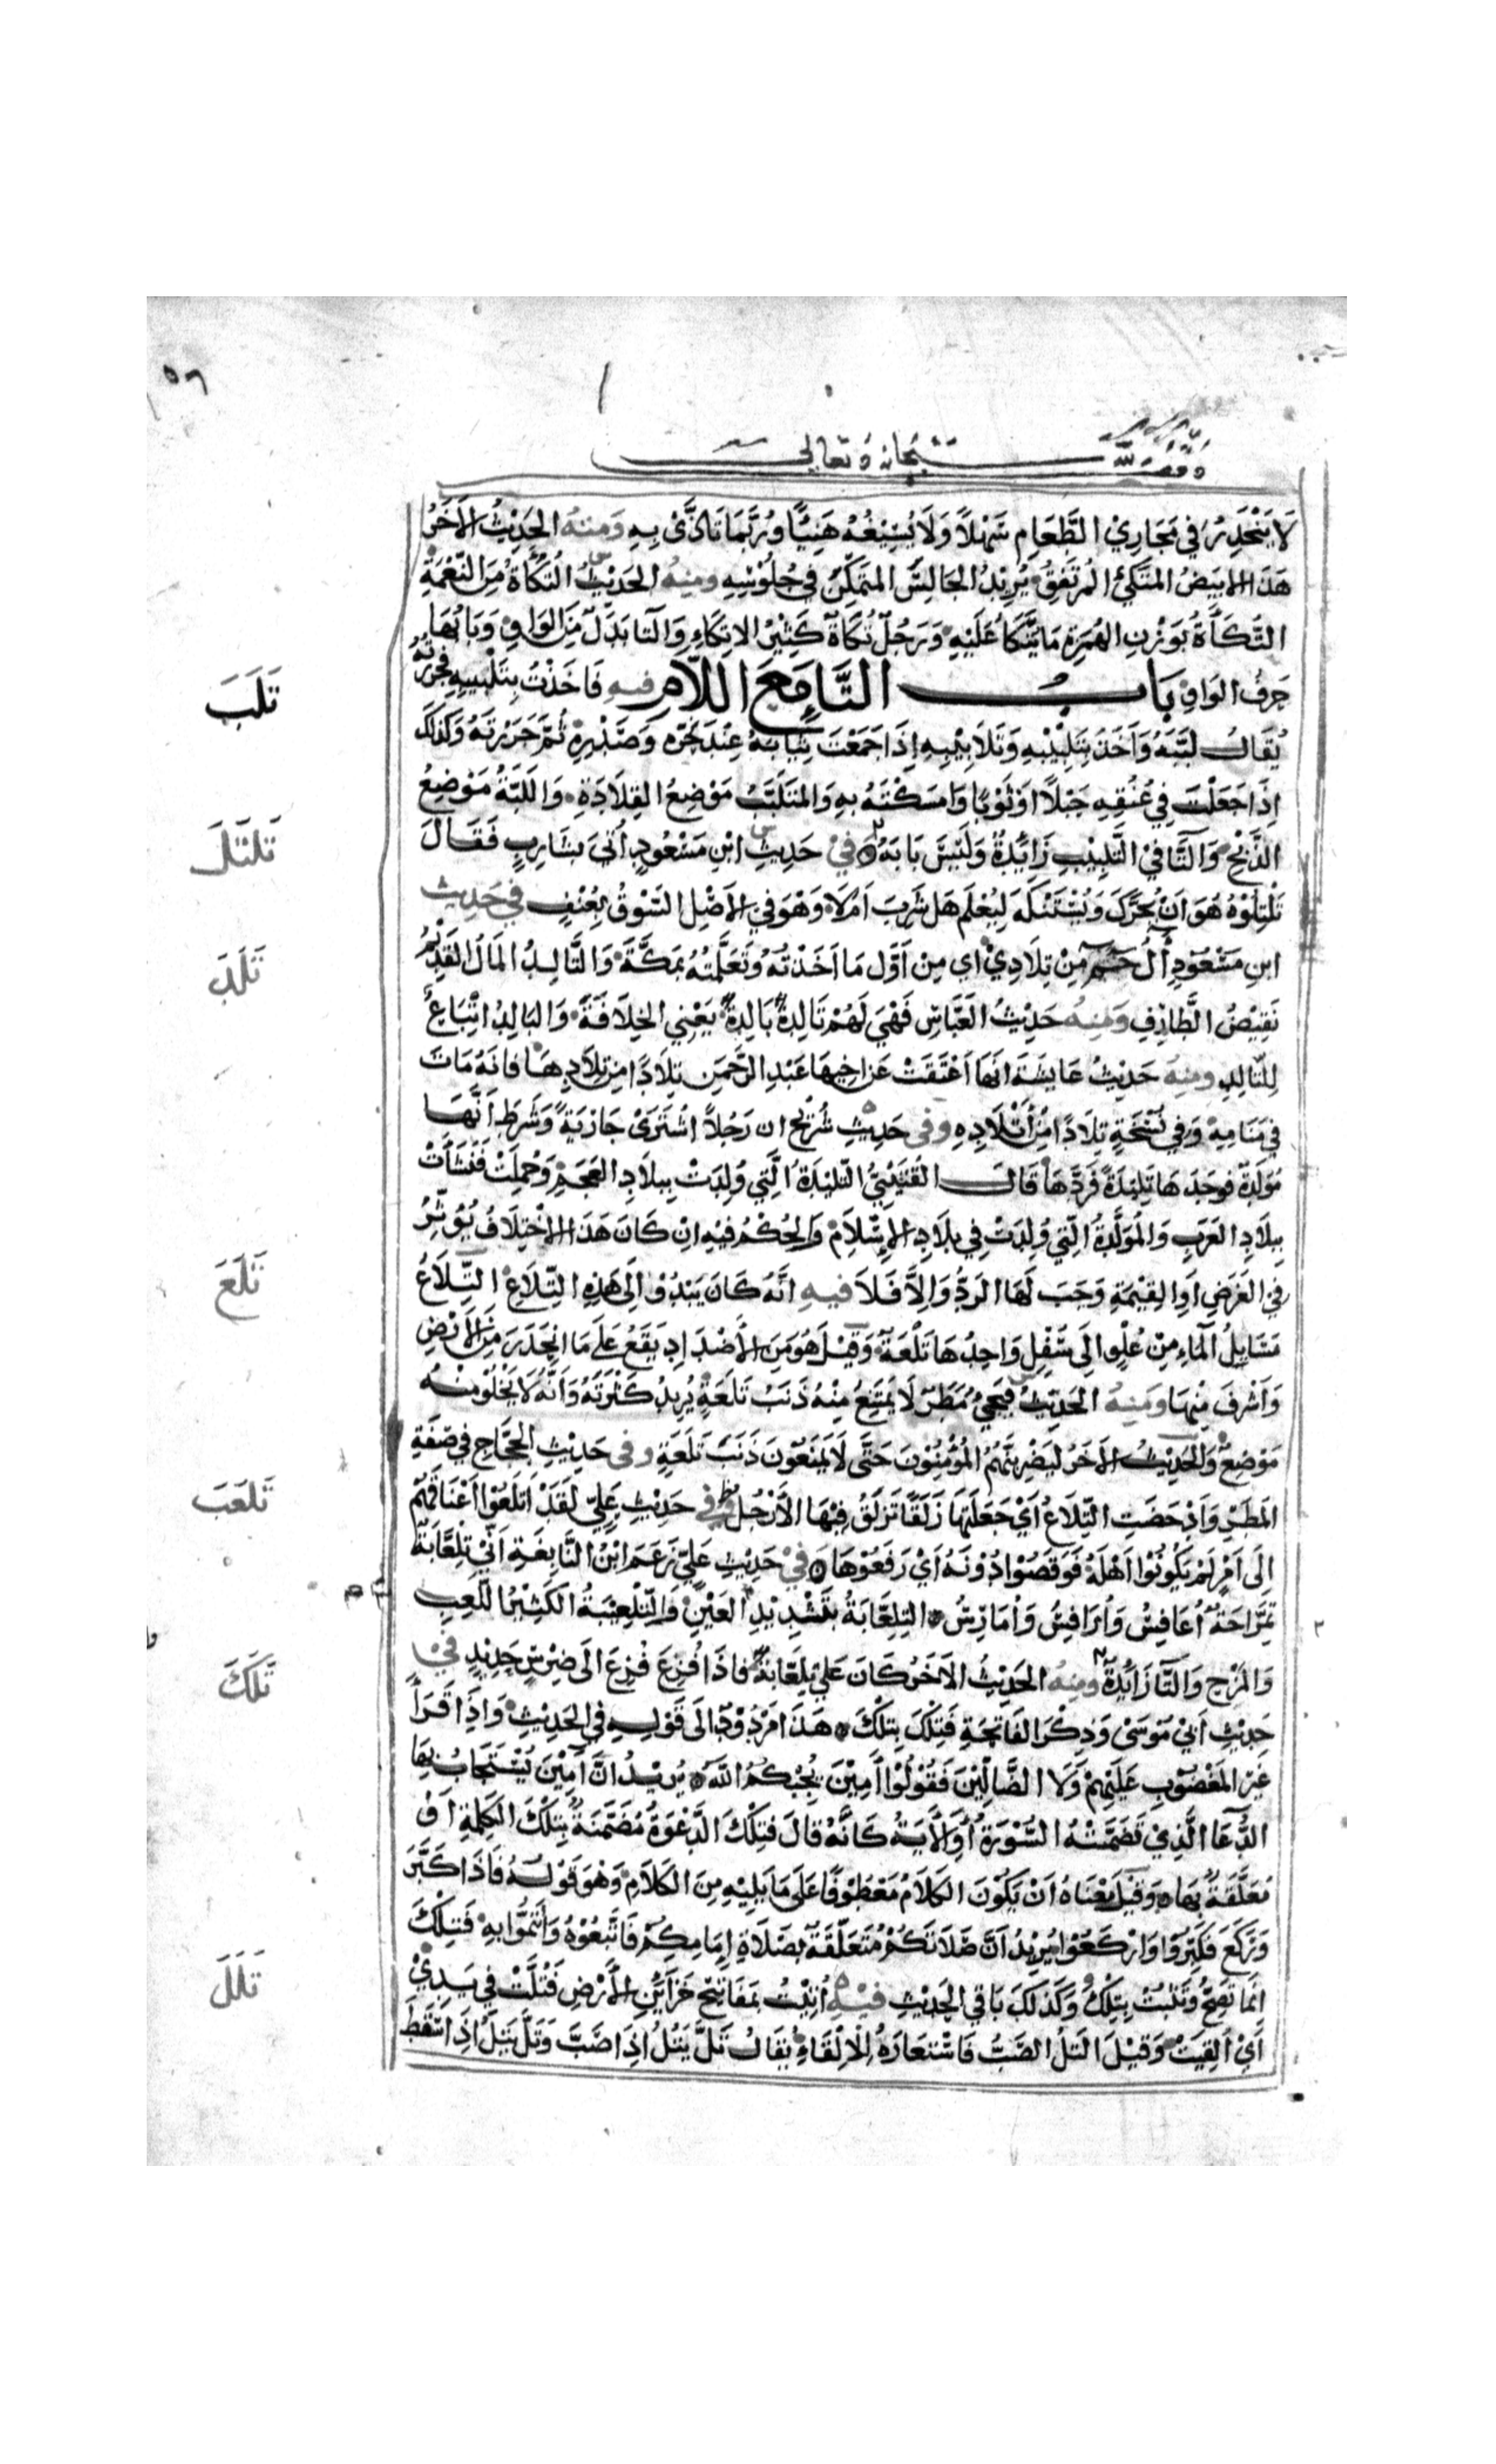 ٥٦
وقف لله سبحانه وتعالى
لَا يَنْحَدِرُ في مَجَارِيْ الطَّعَامِ سَهْلاً وَلَا يُسِيْغُهُ هَنِيْئًا وَرُبَّمَا تَاَذَّىْ بِهِ وَمِنْهُ الحَدِيْثُ الاَخَرُ
هَذَا الاَبْيَضُ المتَّكِئُ المُرْتَفِقُ يُرِيْدُ الجَالِسَ المُتَمَكِّنَ في جُلُوْسِهِ ومنهُ الحَدِيْثُ التُكَأَةُ مِنَ النِّعْمَةِ
التُّكَأَةُ بِوَزْنِ الهُمَزَةِ مَا يُتَّكَأُ عَلَيْهِ وَرَجُلٌ تُكَأَةٌ كَثِيْرُ الاتِّكَاءِ وَالتَّا بَدَلٌ مِنَ الوَاوِ وَبَابُهَا
حَرفُ الوَاوِ بَابُ التَّاءِ مَعَ اللَّامِ فيهِ فَاَخَذْتُ بِتَلْبِيْبِهِ وَجَرَرْتُهُ
تَلَبَ
يُقَالُ لَبَّبَهُ وَاَخَذَ بِتَلْبِيْبِهِ وَتَلَابِيْبِهِ اِذَا جَمَعْتَ ثِيَابَهُ عِنْدَ نَحْرِهِ وَصَدْرِهِ ثُمَّ جَرَرْتَهُ وَكَذَلِكَ
اِذَا جَعَلْتَ فِي عُنُقِهِ حَبْلًا اَوْ ثَوْبًا وَاَمسَكْتَهُ بِهِ وَالمتَلَبَّبُ مَوْضِعُ القِلَادَةِ وَاللَّبَّةُ مَوْضِعُ
تَلْتَلَ
الذَّبْحِ وَالتَّا فيْ التَّلْبِيْبِ زَائِدَةٌ وَلَيْسَ بَابَهُ فيْ حَدِيثِ ابْنِ مَسْعُودٍ اُتِيَ بِشَارِبٍ فَقَالَ
تَلْتِلُوْهُ هُوَ اَنْ يُحَرَّكَ وَيُسْتَنْكَهَ لِيُعْلَمَ هَلْ شَرِبَ اَمْ لَا وَهْوَ فِي الاَصْلِ السَّوْقُ بِعُنْفٍ في حَدِيث
تَلَدَ
ابنِ مَسْعُوْدٍ اٰلُ حٰم مِنْ تِلَادِيْ اي مِن اَوَّلِ مَا اَخَذْتُهُ وَتَعَلَّمْتُهُ بِمَكَّةَ وَالتَّالِدُ المَالُ القَدِيْمُ
نَقِيْضُ الطَّارِفِ وَمِنهُ حَدِيْثُ العَبَّاسِ فَهْيَ لَهُمْ تَالِدَةٌ بَالِدَةٌ يَعْنِي الخِلَافَةَ وَالبَالِدُ اتِّبَاعٌ
لِلتَّالِدِ ومِنهُ حَدِيْثُ عَايِشَةَ اَنَّهَا اَعْتَقَتْ عَنْ اَخِيهَا عَبْدِ الرَّحْمَنِ تِلَادًا مِنْ تِلَادِهَا فَاِنَهُ مَاتَ
في مَنَامِهِ وَفي نُسْخَةٍ تِلَادًا مِنْ اَتْلَادِهِ وفى حَدِيْثِ شُرَيْحٍ ان رَجُلًا اشْتَرَىْ جَارِيَةً وَشَرَطَ اَنَّهَا
مُوَلَّدَةٌ فَوَجَدَهَا تَلِيْدَةً فَرَدَّهَا قَالَ القُتَيْبِيُّ التَّلِيْدَةُ الَّتِي وُلِدَتْ بِبِلَادِ العَجَمِ وَحُمِلَتْ فَنَشَأَتْ
بِبِلَادِ العَرَبِ وَالمُوَلَّدَةُ الَّتِي وُلِدَتْ فِي بِلَادِ الاِسْلَامِ وَالحُكْمُ فيهِ اِنْ كَانَ هَذَا الاِخْتِلَافُ يُؤَثِّرُ
تَلَعَ
في الغَرَضِ اَوِ القِيْمَةِ وَجَبَ لَهَا الرَدُّ وَاِلَّا فَلَا فيهِ اَنَّهُ كَانَ يَبْدُوْ اِلَى هَذِهِ التِّلَاعِ التِّلَاعُ
مَسَايِلُ المَاءِ مِنْ عُلْوٍ الَى سُفْلٍ وَاحِدُهَا تَلْعَةٌ وَقِيْلَ هُوَ مِنَ الاَضْدَادِ يَقَعُ عَلَى مَا انْحَدَرَ مِنَ الاَرْضِ
وَاَشْرَفَ مِنْهَا وَمِنْهُ الحَدِيْثُ فَيَجِيْءُ مَطَرٌ لَا يَمْتَنِعُ مِنْهُ ذَنَبُ تَلْعَةٍ يُرِيدُ كَثْرَتَهُ وَاَنَّهُ لَا يَخْلُوْ مِنْهُ
مَوْضِعٌ وَالحَدِيْثُ الاَخَرُ لَيَضْرِبَنَّهُمُ المُؤْمِنُوْنَ حَتَّى لَا يَمْنَعُوْنَ ذَنَبَ تَلْعَةٍ وفى حَدِيْثِ الحَجَّاجِ في صِفَةِ
تَلعَبَ
المَطَرِ وَاَدْحَضَتِ التِّلَاعُ اَيْ جَعَلَتْهَا زَلَقًا تَزْلَقُ فِيْهَا الاَرْجُلُ وفي حَدِيْثِ عَلِيٍّ لَقَدْ اَتْلَعُوْا اَعْنَاقَهُمْ
اِلَى اَمْرٍ لَمْ يَكُوْنُوْا اَهْلَهُ فَوُقِصُوْا دُوْنَهُ اَيْ رَفَعُوْهَا في حَدِيْثِ عَلِيٍّ زَعَمَ ابْنُ النَّابِغَةِ اَنِّيْ تِلْعَّابَةٌ
تِمْرَاحَةٌ اُعَافِسُ وَاُرَافِسُ وَاُمَارِسُ التِلِعَّابَةُ بتَشْدِيْدِ العَيْنِ وَالتِّلْعِيْبَةُ الكَثِيْرُ اللَّعِبِ
وَالمَرْحِ وَالتَّا زَايِدَةٌ وَمِنهُ الحَدِيْثُ الاَخَرُ كَانَ عَلِيٌّ تِلِعَّابَةً فَاِذَا فُزِعَ فُزِعَ الَى ضِرْسٍ حَدِيْدٍ فيْ
تَلَكَ
حَدِيْثِ اَبِيْ مُوْسَىْ وَذِكْرِ الفَاتِحَةِ فَتِلْكَ بِتِلْكَ هَذَا مَرْدُوْدٌ الَى قَوْلِهِ فِي الحَدِيْثِ وَاِذَا قَرَأَ
غَيْرِ المَغْضُوْبِ عَلَيْهِمْ وَلَا الضَّالِّيْنَ فَقُوْلُوْا آمِيْنَ يُحِبُّكُمُ اللهُ يُرِيْدُ اَنَّ آمِيْنَ يُسْتَجَابُ بِهَا
الدُّعَا الَّذِيْ تَضَمَّنَتْهُ السُّوْرَةُ اَوِ الاَيَةُ كَاَنَّهُ قَالَ فَتِلْكَ الدَّعْوَةُ مُضَمَّنَةٌ بِتِلْكَ الكَلِمَةِ اَوْ
مُعَلَّقَةٌ بِهَا وَقِيْلَ مَعْنَاهُ اَنْ يَكُوْنَ الكَلَامُ مَعْطُوْفًا عَلَى مَا يَلِيْهِ مِنَ الكَلَامِ وَهْوَ قَوْلُهُ فَاِذَا كَبَّرَ
وَرَكَعَ فَكَبِّرُوْا وَارْكَعُوْا يُرِيْدُ اَنَّ صَلَاتَكُمْ مُتَعَلِّقَةٌ بِصَلَاةِ اِمَامِكُمْ فَاتَّبِعُوْهُ وَائْتَمُّوْا بِهِ فَتِلْكَ
تَلَلَ
اِنَّمَا تَصِحُّ وَتَثْبُتُ بِتِلْكَ وَكَذَلِكَ بَاقِي الحَدِيْثِ فيْهِ اُتِيْتُ بِمَفَاتِيْحِ خَزَائِنِ الاَرْضِ فَتُلَّتْ فِي يَدِيْ
اَيْ اُلْقِيَتْ وَقِيْلَ التَّلُّ الصَّبُّ فَاسْتَعَارَهُ لِلاِلْقَاءِ يُقَالُ تَلَّ يَتُلُّ اِذَا صَبَّ وَتَلَّ يَتِلُّ اِذَا سَقَطَ